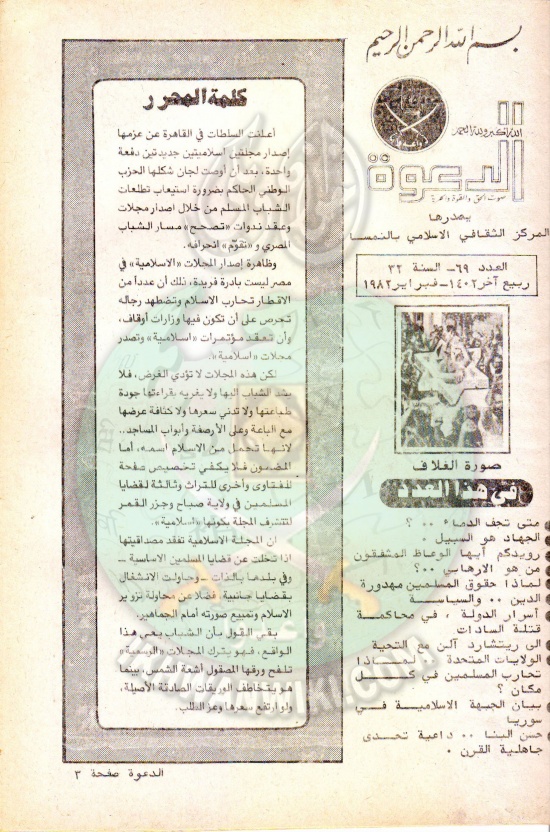 بسم الله الرحمن الرحيم
الله أكبر ولله الحمد
الدعوة
صوت الحق والقوة والحرية
يصدرها
المركز الثقافي الاسلامي بالنمسا
العدد ٦٩ - السنة ٣٢
ربيع آخر ١٤٠٢ - فبراير ١٩٨٢
صورة الغلاف
في هذا العدد
متى تجف الدماء ٠٠ ؟
الجهاد هو السبيل ٠
رويدكم أيها الوعاظ المشفقون
من هو الارهابي ٠٠؟
لماذا حقوق المسلمين مهدورة
الدين ٠٠ والسياسة
أسرار الدولة ، في محاكمة
قتلة السادات
الى ريتشارد آلن مع التحية
الولايات المتحدة ٠٠ لماذا
تحارب المسلمين في كل
مكان ؟
بيان الجبهة الاسلامية في
سوريا
حسن البنا ٠٠ داعية تحدى
جاهلية القرن ٠
كلمة المحرر
أعلنت السلطات في القاهرة عن عزمها
إصدار مجلتين اسلاميتين جديدتين دفعة
واحدة، بعد أن أوصت لجان شكلها الحزب
الوطني الحاكم بضرورة استيعاب تطلعات
الشباب المسلم من خلال اصدار مجلات
وعقد ندوات «تصحح» مسار الشباب
المصري و«تقوّم» انحرافه.
وظاهرة إصدار المجلات «الاسلامية» في
مصر ليست بادرة فريدة، ذلك أن عدداً من
الاقطار تحارب الاسلام وتضطهد رجاله
تحرص على أن تكون فيها وزارات أوقاف،
وأن تعقد مؤتمرات «اسلامية» وتصدر
مجلات «اسلامية».
لكن هذه المجلات لا تؤدي الغرض، فلا
يشد الشباب اليها ولا يغريه بقراءتها جودة
طباعتها ولا تدني سعرها ولا كثافة عرضها
مع الباعة وعلى الأرصفة وأبواب المساجد..
لانها تحمل من الاسلام اسمه، أما
المضمون فلا يكفي تخصيص صفحة
للفتاوى وأخرى للتراث وثالثة لقضايا
المسلمين في ولاية صباح وجزر القمر
لتتشرف المجلة بكونها «اسلامية».
ان المجلة الاسلامية تفقد مصداقيتها
اذا تخلت عن قضايا المسلمين الاساسية -
وفي بلدها بالذات - وحاولت الانشغال
بقضايا جانبية، فضلا عن محاولة تزوير
الاسلام وتمييع صورته أمام الجماهير.
بقي القول بأن الشباب يعي هذا
الواقع، فهو يترك المجلات «الرسمية»
تلفح ورقها المصقول أشعة الشمس، بينما
هو يتخاطف الوريقات الصادقة الأصيلة،
ولو ارتفع سعرها وعز الطلب.
الدعوة صفحة ٣